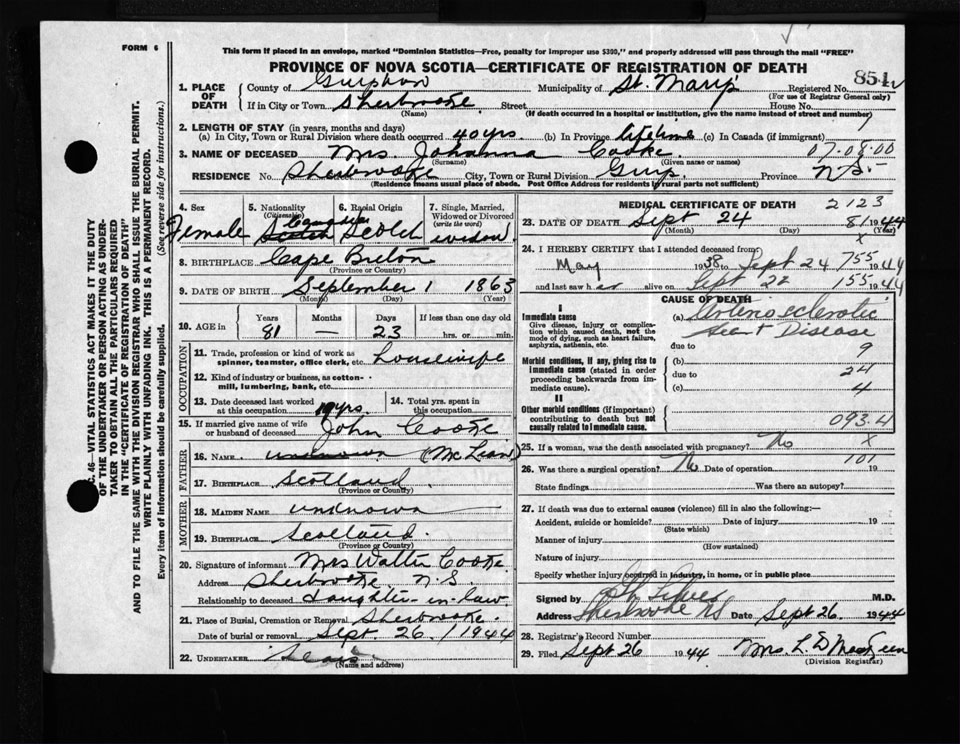 FORM 6
This form if placed in an envelope, marked "Dominion Statistics—Free, penalty for improper use $300," and properly addressed will pass through the mail "FREE"
PROVINCE OF NOVA SCOTIA—CERTIFICATE OF REGISTRATION OF DEATH
851
1. PLACE OF DEATH
County of Municipality of St. Mary's Registered No.
(For use of Registrar General only)
If in City or Town Sherbrooke Street House No.
(Name) (If death occurred in a hospital or institution, give the name instead of street and number)
2. LENGTH OF STAY (in years, months and days)
(a) In City, Town or Rural Division where death occurred 40 yrs. (b) In Province lifetime (c) In Canada (if immigrant)
3. NAME OF DECEASED Mrs. Johanna Cooke 07-08-00
(Surname) (Given name or names)
RESIDENCE No. Sherbrooke City, Town or Rural Division Guys. Province N.S.
(Residence means usual place of abode. Post Office Address for residents in rural parts not sufficient)
4. Sex Female
5. Nationality (Citizenship) Scotch Canadian
6. Racial Origin Scotch
7. Single, Married, Widowed or Divorced (write the word) widow
8. BIRTHPLACE Cape Breton
(Province or Country)
9. DATE OF BIRTH September 1 1863
(Month) (Day) (Year)
10. AGE in Years Months Days If less than one day
81 — 23 hrs. or min.
OCCUPATION
11. Trade, profession or kind of work as spinner, teamster, office clerk, etc. Housewife
12. Kind of industry or business, as cotton-mill, lumbering, bank, etc.
13. Date deceased last worked at this occupation yrs.
14. Total yrs. spent in this occupation
15. If married give name of wife or husband of deceased John Cooke
FATHER
16. NAME unknown (McLean)
17. BIRTHPLACE Scotland
(Province or Country)
MOTHER
18. MAIDEN NAME unknown
19. BIRTHPLACE Scotland
(Province or Country)
20. Signature of informant Mrs Walter Cooke
Address Sherbrooke N.S.
Relationship to deceased daughter-in-law
21. Place of Burial, Cremation or Removal Sherbrooke
Date of burial or removal Sept. 26. / 1944
22. UNDERTAKER
(Name and address)
MEDICAL CERTIFICATE OF DEATH 2123
23. DATE OF DEATH Sept 24 81 1944
(Month) (Day) (Year)
x
24. I HEREBY CERTIFY that I attended deceased from:
May 1938 to Sept 24 755 1944
and last saw her alive on Sept 22 155 1944
CAUSE OF DEATH
Immediate cause
Give disease, injury or complication which caused death, not the mode of dying, such as heart failure, asphyxia, asthenia, etc.
(a) Arterio sclerotic
Heart Disease
due to 9
Morbid conditions, if any, giving rise to immediate cause (stated in order proceeding backwards from immediate cause).
(b)
due to 24
(c) 4
II
Other morbid conditions (if important) contributing to death but not causally related to immediate cause.
093.4
25. If a woman, was the death associated with pregnancy? No x
26. Was there a surgical operation? No Date of operation 101 19
State findings Was there an autopsy?
27. If death was due to external causes (violence) fill in also the following:—
Accident, suicide or homicide? Date of injury 19
(State which)
Manner of injury
(How sustained)
Nature of injury
Specify whether injury occurred in industry, in home, or in public place
Signed by M.D.
Address Sherbrooke NS Date Sept 26 1944
28. Registrar's Record Number
29. Filed Sept 26 1944 Mrs. L. D
(Division Registrar)
C. 46—VITAL STATISTICS ACT MAKES IT THE DUTY
OF THE UNDERTAKER OR PERSON ACTING AS UNDER-
TAKER TO OBTAIN ALL THE PARTICULARS REQUIRED
IN THE "CERTIFICATE OF REGISTRATION OF DEATH"
AND TO FILE THE SAME WITH THE DIVISION REGISTRAR WHO SHALL ISSUE THE BURIAL PERMIT.
WRITE PLAINLY WITH UNFADING INK. THIS IS A PERMANENT RECORD.
Every item of information should be carefully supplied. (See reverse side for instructions.)